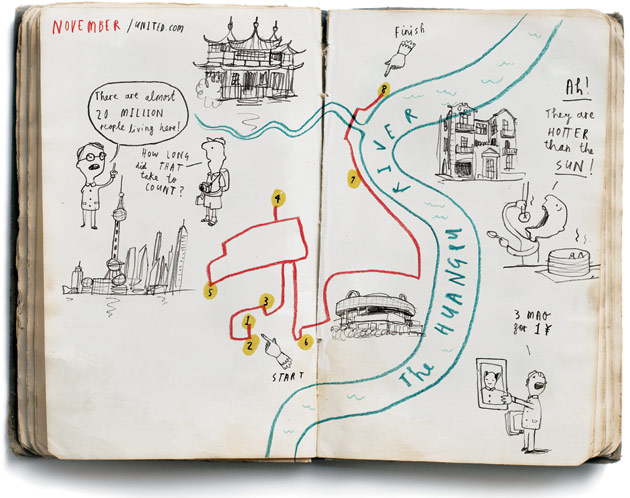 NOVEMBER / UNITED.COM
There are almost
20 MILLION
people living here!
HOW LONG
did THAT
take to
COUNT?
Finish
8
RIVER
7
The HUANGPU
4
5
3
1
2
6
START
Ah!
They are
HOTTER
than the
SUN!
3 MAO
for 1 ¥